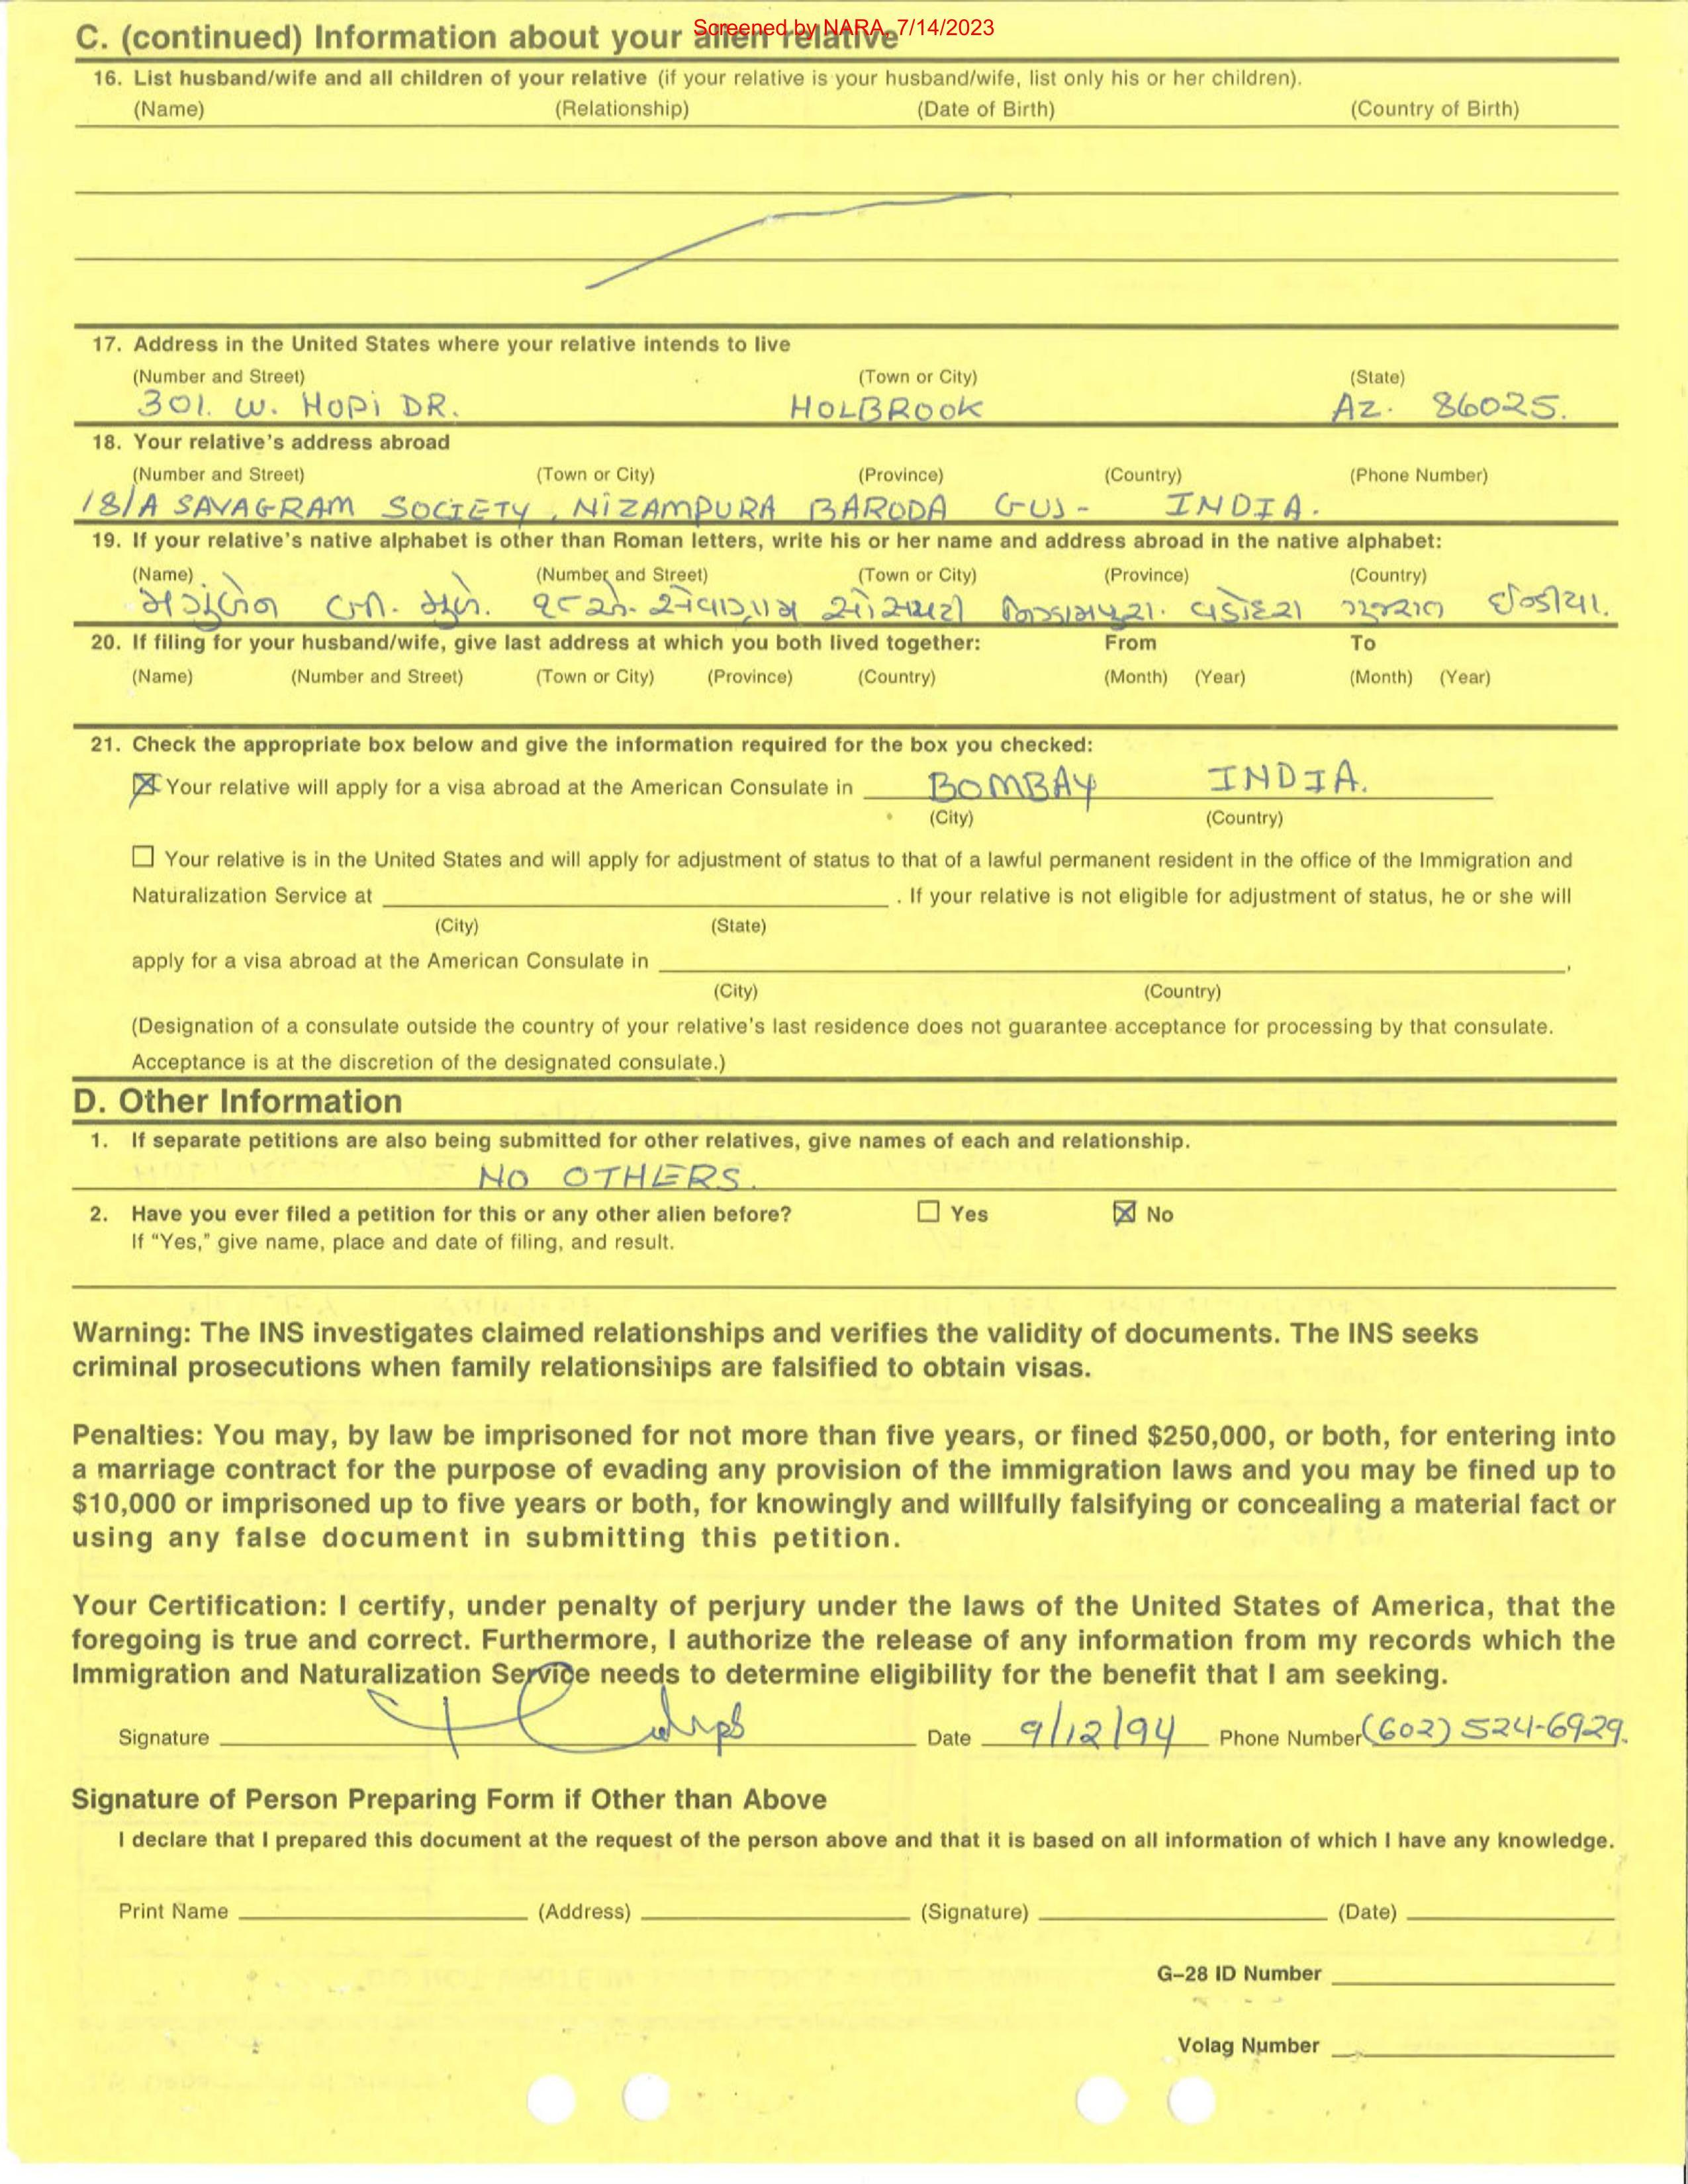 Screened by NARA, 7/14/2023
C. (continued) Information about your alien relative
16. List husband/wife and all children of your relative (if your relative is your husband/wife, list only his or her children).
(Name) (Relationship) (Date of Birth) (Country of Birth)
17. Address in the United States where your relative intends to live
(Number and Street) (Town or City) (State)
301. W. HOPI DR. HOLBROOK AZ. 86025.
18. Your relative's address abroad
(Number and Street) (Town or City) (Province) (Country) (Phone Number)
18/A SAVAGRAM SOCIETY, NIZAMPURA BARODA GUJ- INDIA.
19. If your relative's native alphabet is other than Roman letters, write his or her name and address abroad in the native alphabet:
(Name) (Number and Street) (Town or City) (Province) (Country)
સોસાયટી નિઝામપુરા. વડોદરા ગુજરાત ઈન્ડીયા.
20. If filing for your husband/wife, give last address at which you both lived together: From To
(Name) (Number and Street) (Town or City) (Province) (Country) (Month) (Year) (Month) (Year)
21. Check the appropriate box below and give the information required for the box you checked:
Your relative will apply for a visa abroad at the American Consulate in BOMBAY INDIA.
(City) (Country)
Your relative is in the United States and will apply for adjustment of status to that of a lawful permanent resident in the office of the Immigration and
Naturalization Service at . If your relative is not eligible for adjustment of status, he or she will
(City) (State)
apply for a visa abroad at the American Consulate in ,
(City) (Country)
(Designation of a consulate outside the country of your relative's last residence does not guarantee acceptance for processing by that consulate.
Acceptance is at the discretion of the designated consulate.)
D. Other Information
1. If separate petitions are also being submitted for other relatives, give names of each and relationship.
NO OTHERS.
2. Have you ever filed a petition for this or any other alien before? Yes No
If "Yes," give name, place and date of filing, and result.
Warning: The INS investigates claimed relationships and verifies the validity of documents. The INS seeks
criminal prosecutions when family relationships are falsified to obtain visas.
Penalties: You may, by law be imprisoned for not more than five years, or fined $250,000, or both, for entering into
a marriage contract for the purpose of evading any provision of the immigration laws and you may be fined up to
$10,000 or imprisoned up to five years or both, for knowingly and willfully falsifying or concealing a material fact or
using any false document in submitting this petition.
Your Certification: I certify, under penalty of perjury under the laws of the United States of America, that the
foregoing is true and correct. Furthermore, I authorize the release of any information from my records which the
Immigration and Naturalization Service needs to determine eligibility for the benefit that I am seeking.
Signature Date 9/12/94 Phone Number (602) 524-6929.
Signature of Person Preparing Form if Other than Above
I declare that I prepared this document at the request of the person above and that it is based on all information of which I have any knowledge.
Print Name (Address) (Signature) (Date)
G-28 ID Number
Volag Number